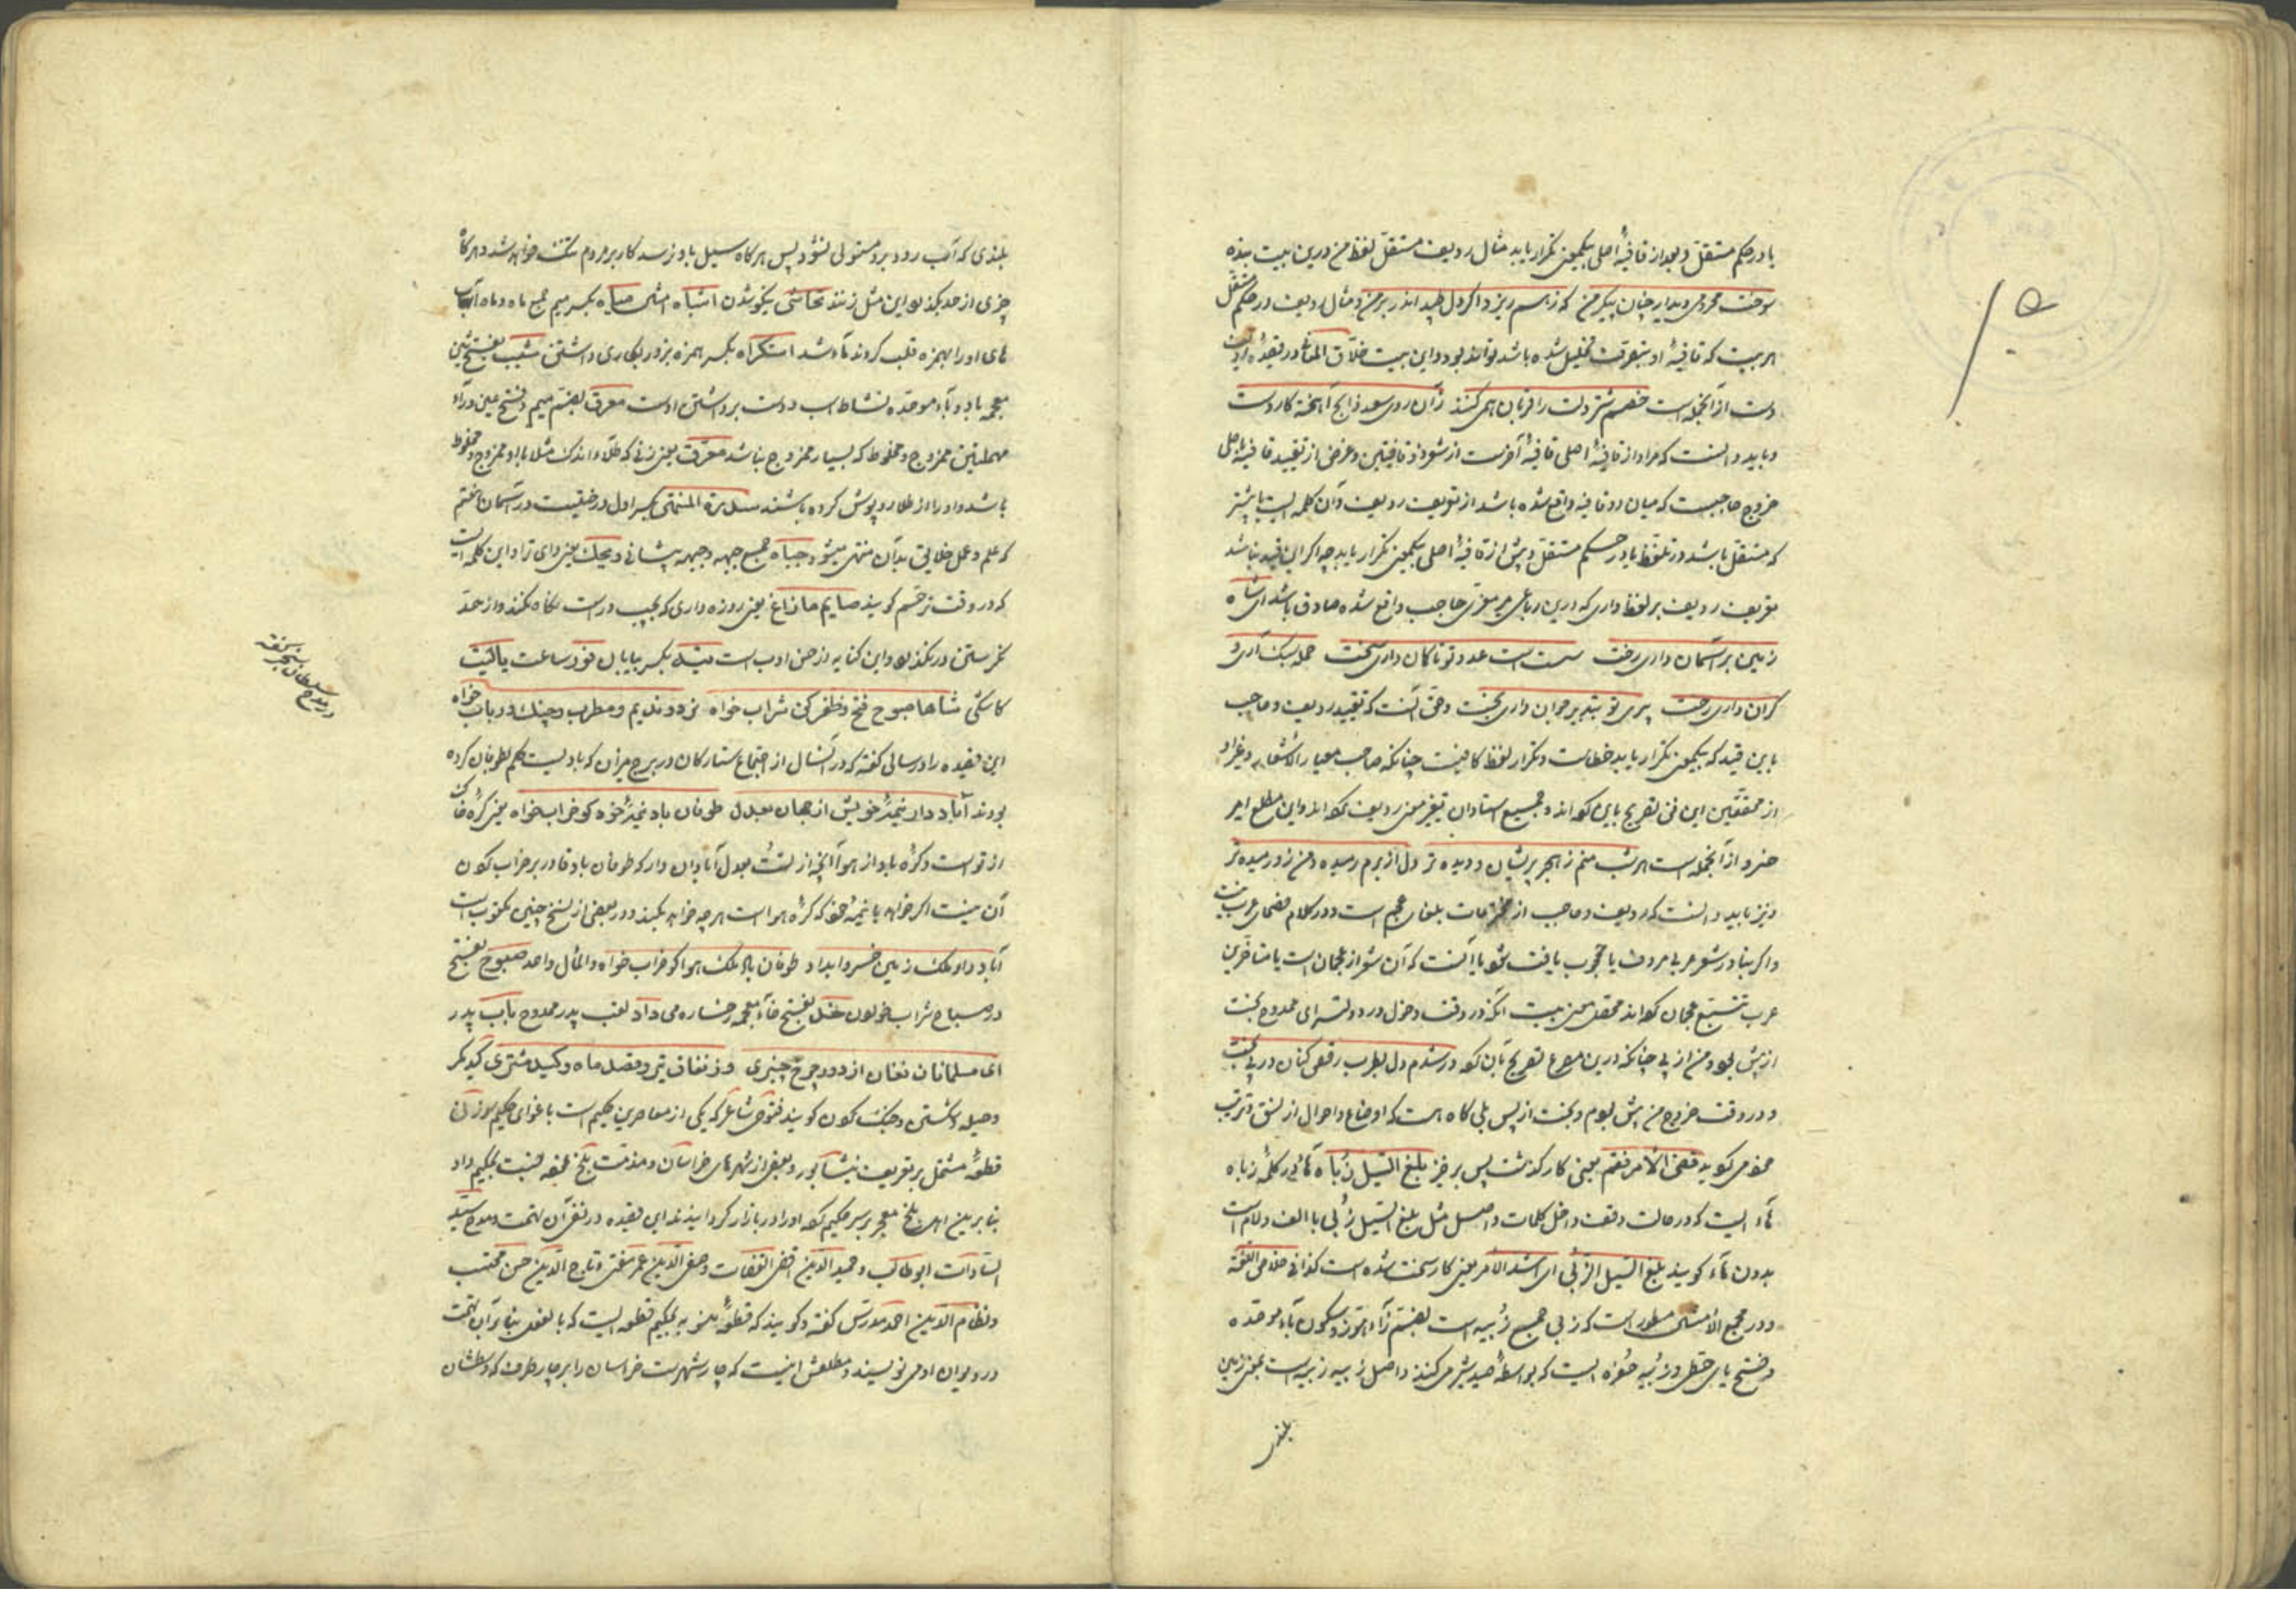 یا در حکم مستقل و بعد از قافیهٔ اصلی بیکمعنی تکرار یابد مثال ردیف مستقل لفظ من درین بیت بنده
سوخت محرومی دیدار چنان پیکر من که ز هم ریزد اگر دل طپد اندر بر من و مثال ردیف در حکم مستقل
هر بیت که قافیهٔ او بتعرف تحلیل شده باشد تواند بود و این بیت خلاق المعانی در قصیده
دست از آنجمله است خصم شتر دلت را قربان همی کنند زان روی سعد ذابح آهخته کارد است
و باید دانست که مراد از قافیهٔ اصلی قافیهٔ آخرست از شعر ذو قافیتین و غرض از تقیید قافیه باصل
خروج حاجبست که میان دو قافیه واقع شده باشد از تعریف ردیف و آن کلمه ایست یا بیشتر
که مستقل باشد در تلفظ یا در حکم مستقل و پیش از قافیهٔ اصلی بیکمعنی تکرار یابد چه اگر این قید نباشد
تعریف ردیف بر لفظ داری که درین رباعی میر معزی حاجب واقع شده صادق باشد ای شاه
زمین بر آسمان داری تخت سست است عدو تو تا کمان داری سخت حمله سبک آری و
گران داری رخت پیری تو بتدبیر جوان داری بخت و حق آنست که تقیید ردیف و حاجب
باین قید که بیکمعنی تکرار یابد خطاست و تکرار لفظ کافیست چنانکه صاحب معیار الاشعار و غیر او
از محققین این فن تصریح باین کرده اند و جمیع استادان تغییر معنی ردیف کرده اند و این مطلع امیر
خسرو از آنجمله است هر شب منم ز هجر پریشان و دیده تر دل از برم رمیده و من زو رمیده تر
و نیز باید دانست که ردیف و حاجب از مخترعات بلغای عجم است و در کلام فصحای عرب نیست
و اگر بنادر شعر عربی مردف یا محجوب یافت شود یا آنست که آن شعر از عجمان است یا متاخرین
عرب تتبع عجمان کرده اند محصل معنی بیت آنکه در وقت دخول در دولتسرای ممدوح بخت
از پیش بود و من از پی چنانکه درین مصرع تصریح بآن کرده در شدم دل بطرب رقص کنان در پی بخت
و در وقت خروج من پیش بودم و بخت از پس بلی گاه هست که اوضاع و احوال از نسق و ترتیب
می گوید قضی الامر فقم یعنی کار گذشت پس برخیز بلغ السیل زباه هائی در کلمهٔ زباه
هاء ایست که در حالت وقف داخل کلمات و اصل مثل بلغ السیل زبی با الف و لام است
بدون هاء گویند بلغ السیل الزبی ای اشتد الامر یعنی کار سخت شده است کذا فی خلاص اللغة
و در مجمع الامثال مسطور است که زبی جمع زبیه است بضم زاء هوز و سکون باء موحده
و فتح یای حطی و زبیه حفره ایست که بواسطهٔ صید شیر می کنند و اصل زبیه زبیه است بمعنی زمین
بلندی که آب رود برو مستولی نشود پس هرگاه سیل باو برسد کار بر مردم تنگ خواهد شد و هرگاه
چیزی از حد بگذرد این مثل زنند تحاشی یکسو شدن اشباه امثال میاه بکسر میم جمع ماه و ماه آب
های او را بهمزه قلب کردند ماء شد استکراه بکسر همزه بزور بکاری داشتن شبب بفتح شین
معجمه با دو باء موحده نشاط اسب و دست برداشتن اوست معرق بضم میم و فتح عین و راء
مهملتین ممزوج و مخلوط که بسیار ممزوج نباشد معرق یعنی زنی که طلاء اندک مثلا باو ممزوج و مخلوط
باشد و او را از طلا روپوش کرده باشند سدرة المنتهی بکسر اول درختیست در آسمان هفتم
که علم و عمل خلایق بدان منتهی میشود جباه جمع جبهه و جبهه پیشانی ویحک یعنی وای ترا و این کلمه ایست
که در وقت ترحم گویند صایم مازاغ یعنی روزه داری که بچپ و راست نگاه نکند و از حد
نگرستن در نگذرد و این کنایه از حسن ادب است تیه بکسر بیابان خود ساعت یالیت
کاشکی شاها صبوح فتح و ظفر کن شراب خواه نرد و ندیم و مطرب و چنگ و رباب خواه
این قصیده را در سالی گفته که در آنسال از اجتماع ستارگان در برج میزان که بادیست حکم بطوفان کرده
بودند آباد دار نیمهٔ خویش از جهان بعدل طوفان باد نیمهٔ خود گو خراب خواه یعنی کرهٔ خاک
از تو است و کرهٔ باد از هوا آنچه از تست بعدل آبادان دار که طوفان باد قادر بر خراب کردن
آن نیست اگر خواهد با نیمهٔ خود که کرهٔ هواست هرچه خواهد بکند و در بعضی از نسخ چنین مکتوب است
آباد دار ملک زمین خسروا بداد طوفان باد ملک هوا گو خراب خواه و المآل واحد صبوح بفتح
در صباح شراب خوردن خد بفتح خاء معجمه رخساره می داد لقب پدر ممدوح باب پدر
ای مسلمانان فغان از دور چرخ چنبری وز نفاق تیر و قصد ماه و کید مشتری کید مکر
و حیله کردن و جنگ کردن گویند فتوحی شاعر که یکی از معاصرین حکیم است باغوای حکیم سوزنی
قطعهٔ مشتمل بر تعریف نیشابور و بعضی از شهرهای خراسان و مذمت بلخ گفته نسبت بحکیم داد
بنا برین اهل بلخ معجر بر سر حکیم کرده او را در بازار گردانیدند این قصیده در نفی آن تهمت و مدح سید
السادات ابو طالب و حمید الدین اقضی القضات و صفی الدین عمر مفتی و تاج الدین حسن محتسب
و نظام الدین احمد مدرس گفته و گویند که قطعهٔ منسوبه بحکیم قطعه ایست که بالفعل بنا بر آن تهمت
در دیوان او می نویسند و مطلعش اینست که چار شهرست خراسان را بر چار طرف که وسطشان
در مدح سلطان سنجر گفته